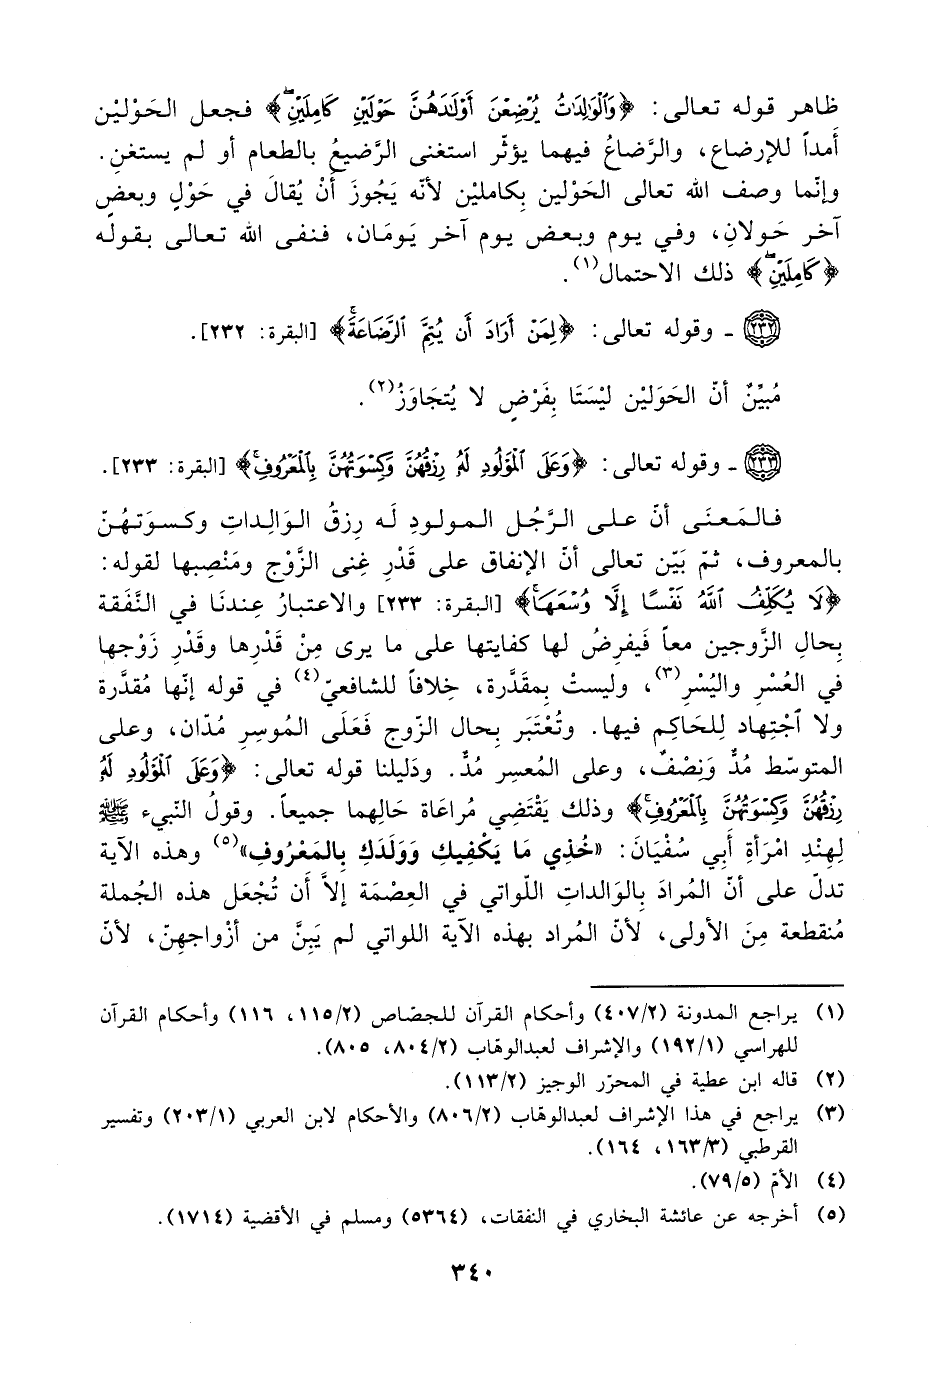 ظاهر قوله تعالى: ﴿وَٱلْوَٰلِدَٰتُ يُرْضِعْنَ أَوْلَٰدَهُنَّ حَوْلَيْنِ كَامِلَيْنِۖ﴾ فجعل الحَوْليْن
أمداً للإرضاع، والرَّضاعُ فيهما يؤثّر استغنى الرَّضيعُ بالطعام أو لم يستغنِ.
وإنّما وصف الله تعالى الحَوْلين بِكامليْن لأنه يَجُوزَ أَنْ يُقالَ في حَوْلٍ وبعضٍ
آخر حَولانِ، وفي يوم وبعض يوم آخر يَومَان، فنفى الله تعالى بقوله
﴿كَامِلَيْنِۖ﴾ ذلك الاحتمال(١).
(٢٣٢) ـ وقوله تعالى: ﴿لِمَنْ أَرَادَ أَن يُتِمَّ ٱلرَّضَاعَةَۚ﴾ [البقرة: ٢٣٢].
مُبيِّنٌ أنّ الحَولَيْن ليْسَتَا بِفَرْضٍ لا يُتجَاوَزُ(٢).
(٢٣٣) ـ وقوله تعالى: ﴿وَعَلَى ٱلْمَوْلُودِ لَهُۥ رِزْقُهُنَّ وَكِسْوَتُهُنَّ بِٱلْمَعْرُوفِۚ﴾ [البقرة: ٢٣٣].
فالمَعنَى أنّ على الرَّجُل المولودِ لَه رِزقُ الوَالِداتِ وكسوَتهُنّ
بالمعروف، ثمّ بَيّن تعالى أنّ الإنفاق على قَدْرِ غِنى الزَّوْج ومَنْصِبها لقوله:
﴿لَا يُكَلِّفُ ٱللَّهُ نَفْسًا إِلَّا وُسْعَهَاۚ﴾ [البقرة: ٢٣٣] والاعتبارُ عِندنَا في النَّفَقة
بِحالِ الزَّوجين معاً فَيفرِضُ لها كفايتها على ما يرى مِنْ قَدْرِها وقَدْرِ زَوْجها
في العُسْرِ واليُسْرِ(٣)، وليستْ بِمقدَّرة، خِلافاً للشافعيّ(٤) في قوله إنّها مُقدَّرة
ولا ٱجْتِهاد لِلحَاكِم فيها. وتُعْتبَر بِحال الزّوج فَعَلَى المُوسِرِ مُدّان، وعلى
المتوسّط مُدٌّ وَنِصْفٌ، وعلى المُعسِر مُدٌّ. ودَليلنا قوله تعالى: ﴿وَعَلَى ٱلْمَوْلُودِ لَهُۥ
رِزْقُهُنَّ وَكِسْوَتُهُنَّ بِٱلْمَعْرُوفِۚ﴾ وذلك يَقْتَضِي مُراعَاة حَالِهما جميعاً. وقولُ النّبيء ﷺ
لِهِنْدِ امْرَأةِ أَبِي سُفْيَانَ: «خُذِي مَا يَكْفِيكِ وَوَلَدَكِ بِالمَعْرُوفِ»(٥) وهذه الآية
تدلّ على أنّ المُرادَ بِالوَالداتِ اللّواتي في العِصْمَة إلاَّ أَن تُجْعَل هذه الجُملة
مُنقطعة مِنَ الأولى، لأنّ المُراد بهذه الآية اللواتي لم يَبِنَّ من أزْواجهِنّ، لأنّ
(١) يراجع المدونة (٤٠٧/٢) وأحكام القرآن للجصّاص (١١٥/٢، ١١٦) وأحكام القرآن
للهراسي (١٩٢/١) والإشراف لعبدالوهاب (٨٠٤/٢، ٨٠٥).
(٢) قاله ابن عطية في المحرّر الوجيز (١١٣/٢).
(٣) يراجع في هذا الإشراف لعبدالوهاب (٨٠٦/٢) والأحكام لابن العربي (٢٠٣/١) وتفسير
القرطبي (١٦٣/٣، ١٦٤).
(٤) الأمّ (٧٩/٥).
(٥) أخرجه عن عائشة البخاري في النفقات، (٥٣٦٤) ومسلم في الأقضية (١٧١٤).
٣٤٠